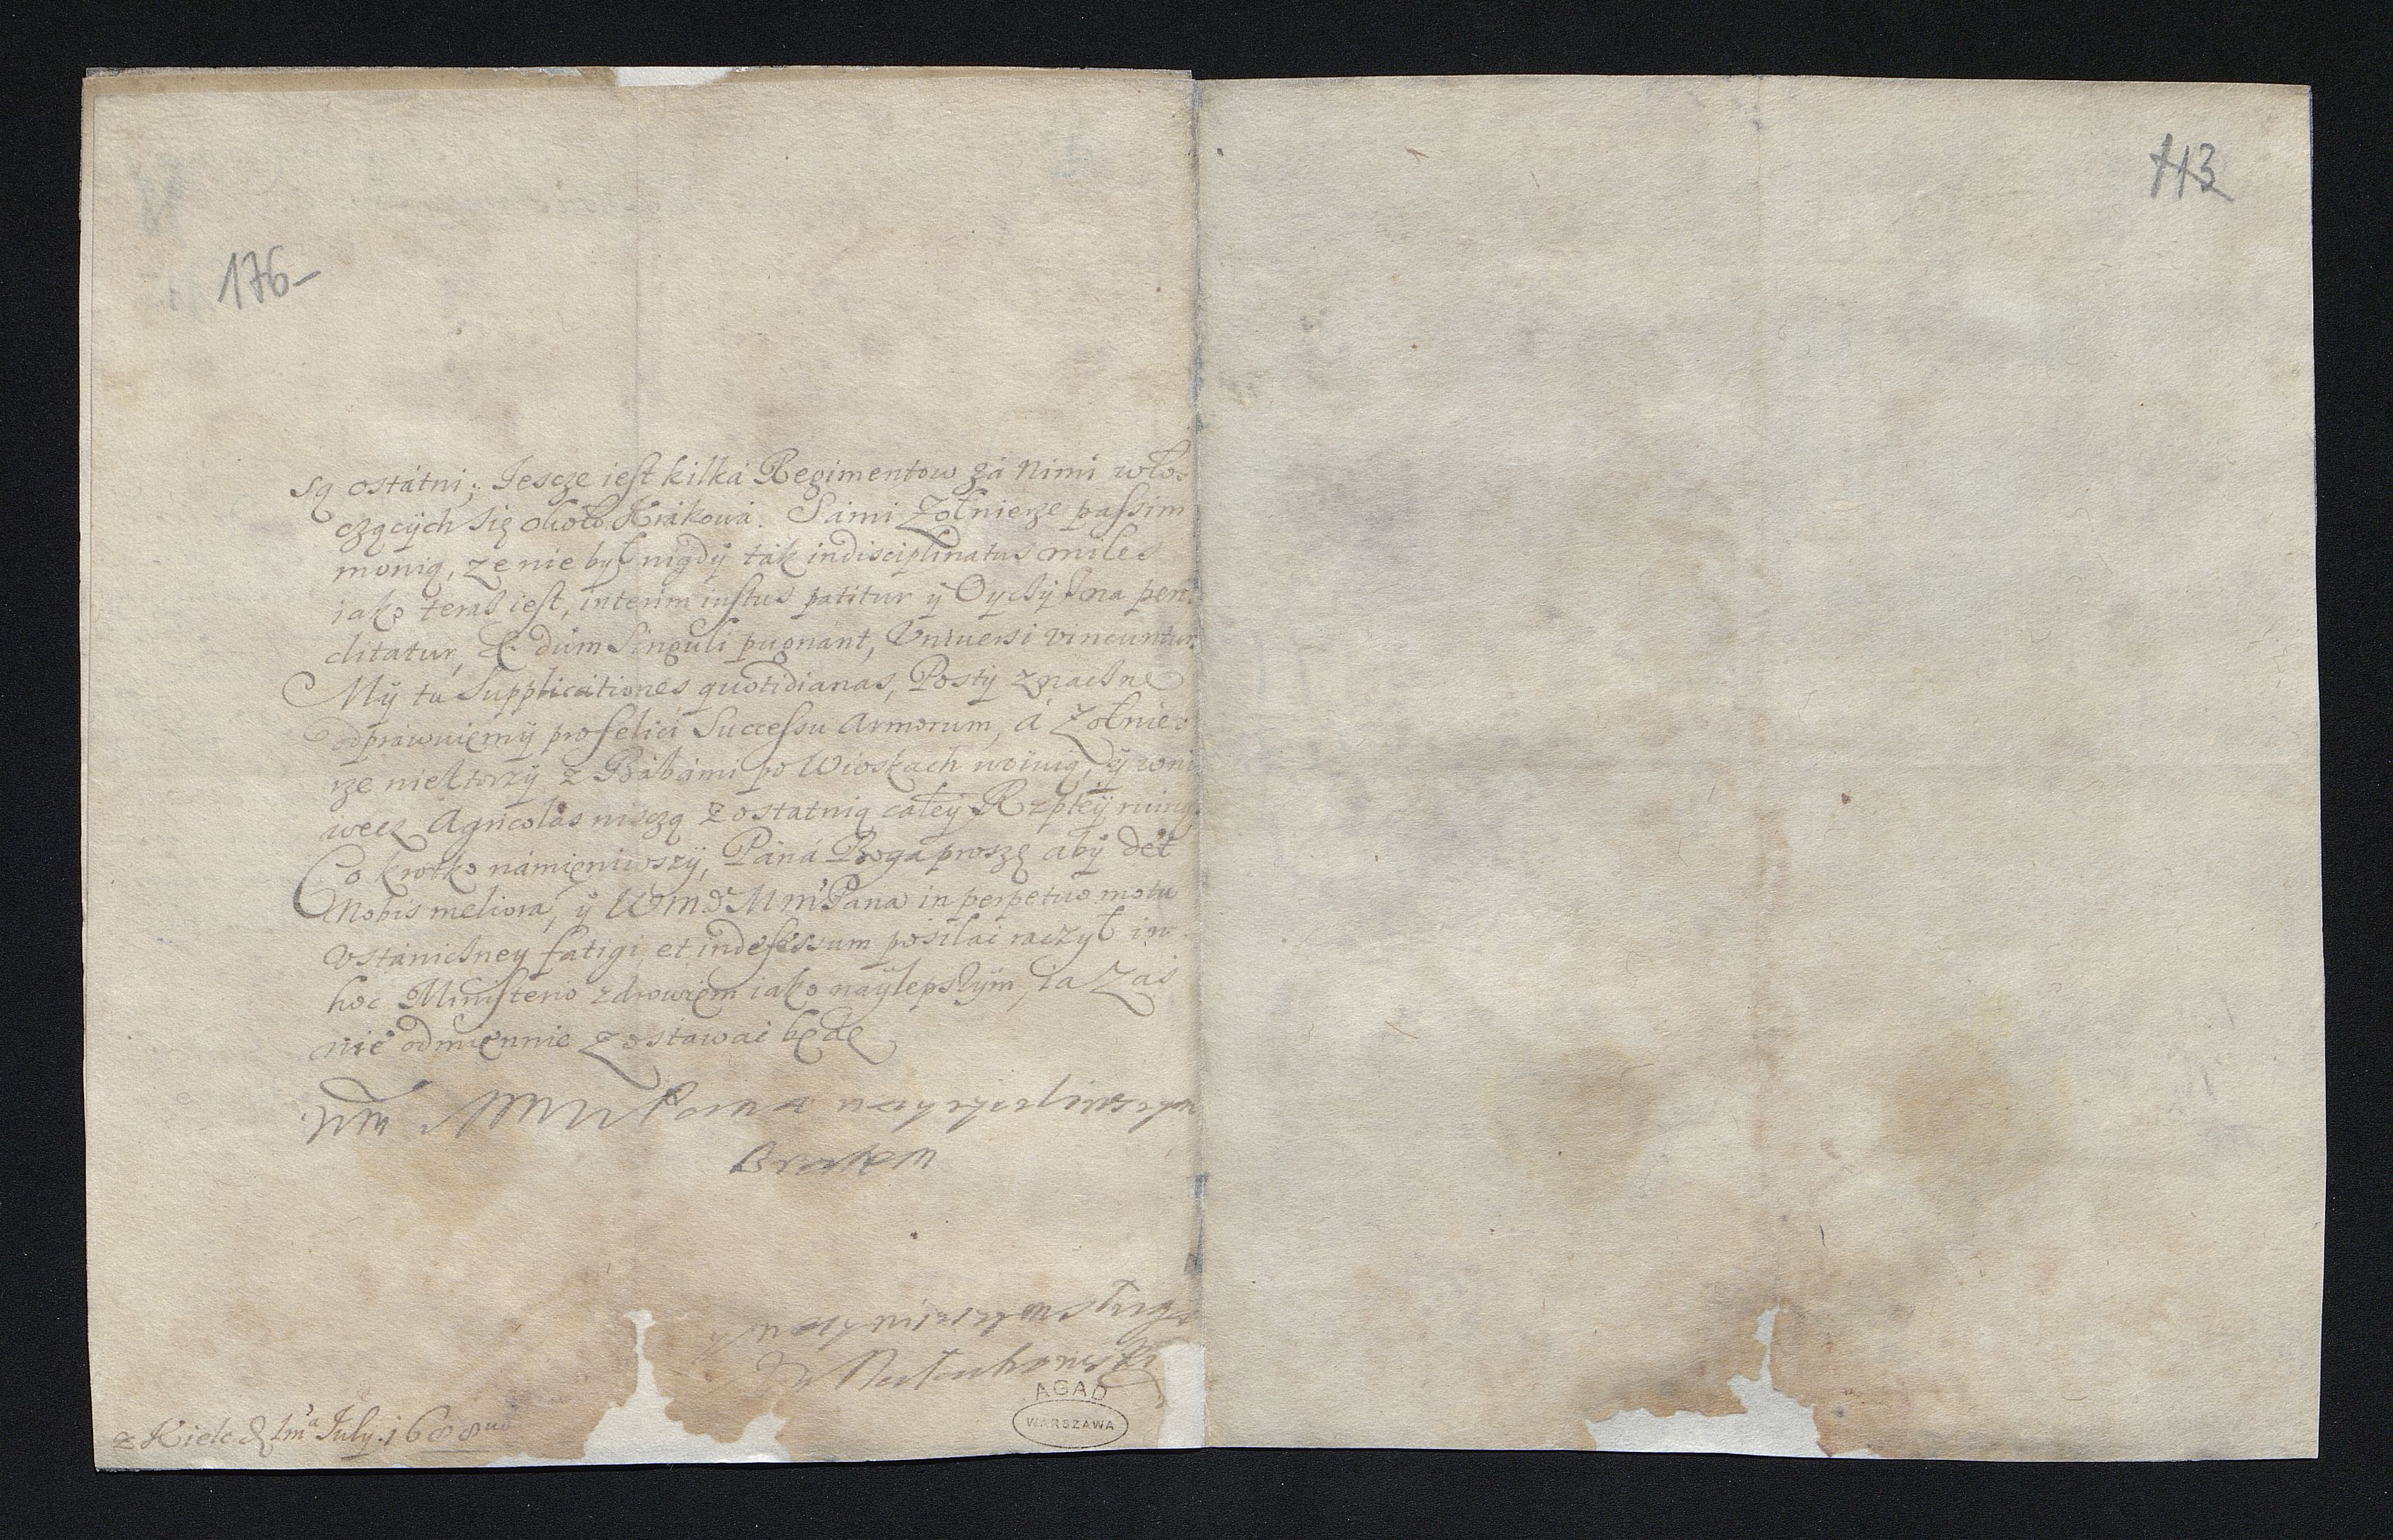 176-
są ostátni; Iescze iest kilká Regimentow zá nimi wło-
czących się około Krákowá. Sámi Zołnierze passim
monią, ze nie był nigdy ták indisciplinatus miles
iako teras iest, interim iustus patitur ÿ Oyczÿzna peri
clitatur, &. dum Singuli pugnant, Vniuersi vincuntur.
Mÿ tu Supplicationes quotidianas, Postÿ znaczne
odprawuiemÿ pro felici Successu Armorum, á Zołnie-
rze niektorzÿ z Bábámi po Wioskach woiuią, ÿ wni
wecz Agricolas niszczą z ostatnią całeÿ Rzpteÿ ruiną.
Co krotko námieniwszÿ, Páná Bogá proszę abÿ det
Nobis meliora, ÿ Wm Mm Pana in perpetuo motu
Vstawiczney fatigi et indefessum posiłać raczył in
hoc Ministerio zdrowiem iako naÿlepszÿm, ia zaś
nie odmiennie zostawać będę
Wm MM Pana nayzyczliwszym
Bratem
y naynizszym sługą
Małachowski
z Kielc d 1ma July. 1688
AGAD
WARSZAWA
113